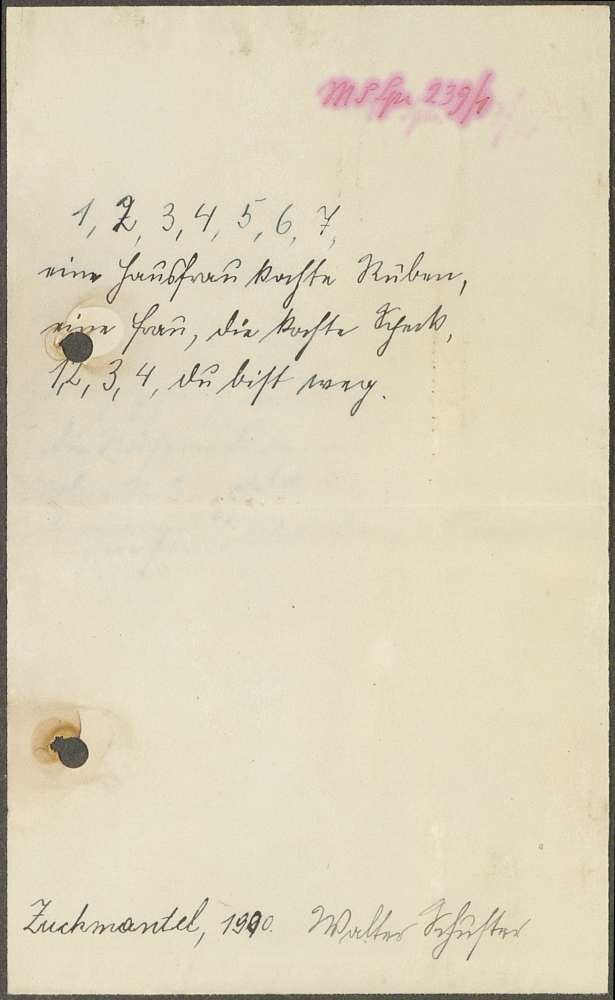 MS Spr 239/1
1, 2, 3, 4, 5, 6, 7,
eine Hausfrau kochte Rüben,
eine Frau, die kochte Speck,
1, 2, 3, 4, du bist weg.
Zuckmantel, 1910. Walter Schuster